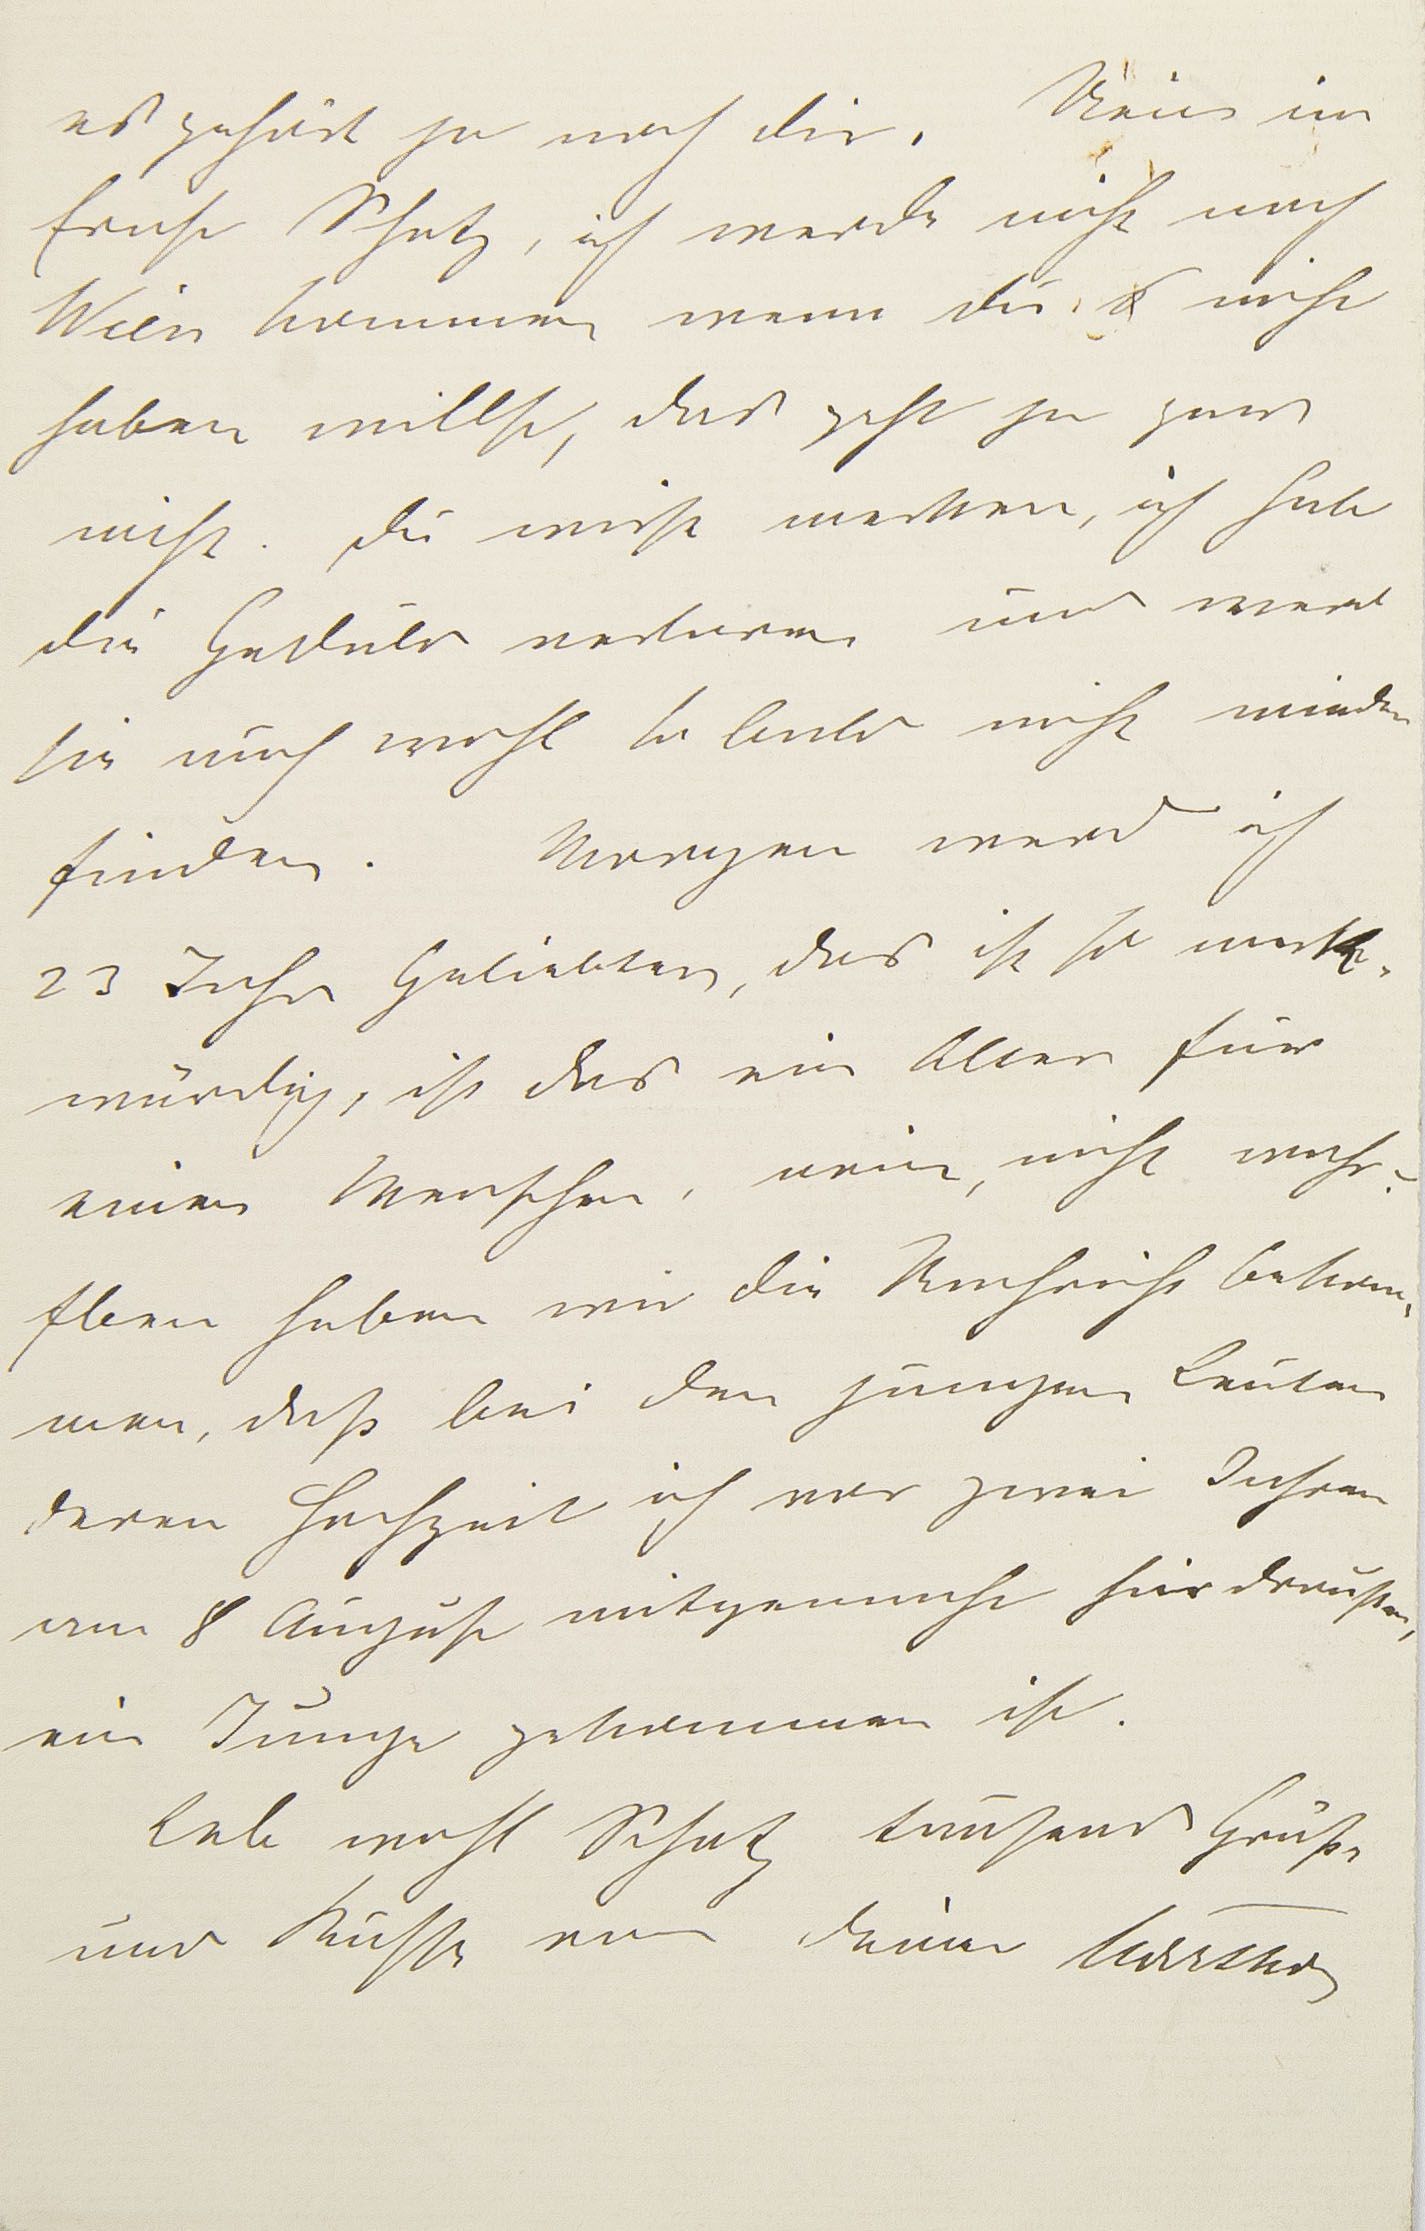 es gehört ja noch dir. Nein im
Ernst Schatz, ich werde nicht nach
Wien kommen wenn du es nicht
haben willst, das geht ja gar
nicht. Du wirst merken, ich habe
die Geduld verloren und werd
sie auch wohl so bald nicht wieder
finden. Morgen werd ich
23 Jahr Geliebter, das ist so merk-
würdig, ist das ein Alter für
einen Menschen, nein, nicht wahr?
Eben haben wir die Nachricht bekom-
men, daß bei den jungen Leuten
deren Hochzeit ich vor zwei Jahren
am 8 August mitgemacht hier draußen,
ein Junge gekommen ist.
Leb wohl Schatz tausend Grüße
und Küsse von deiner Martha